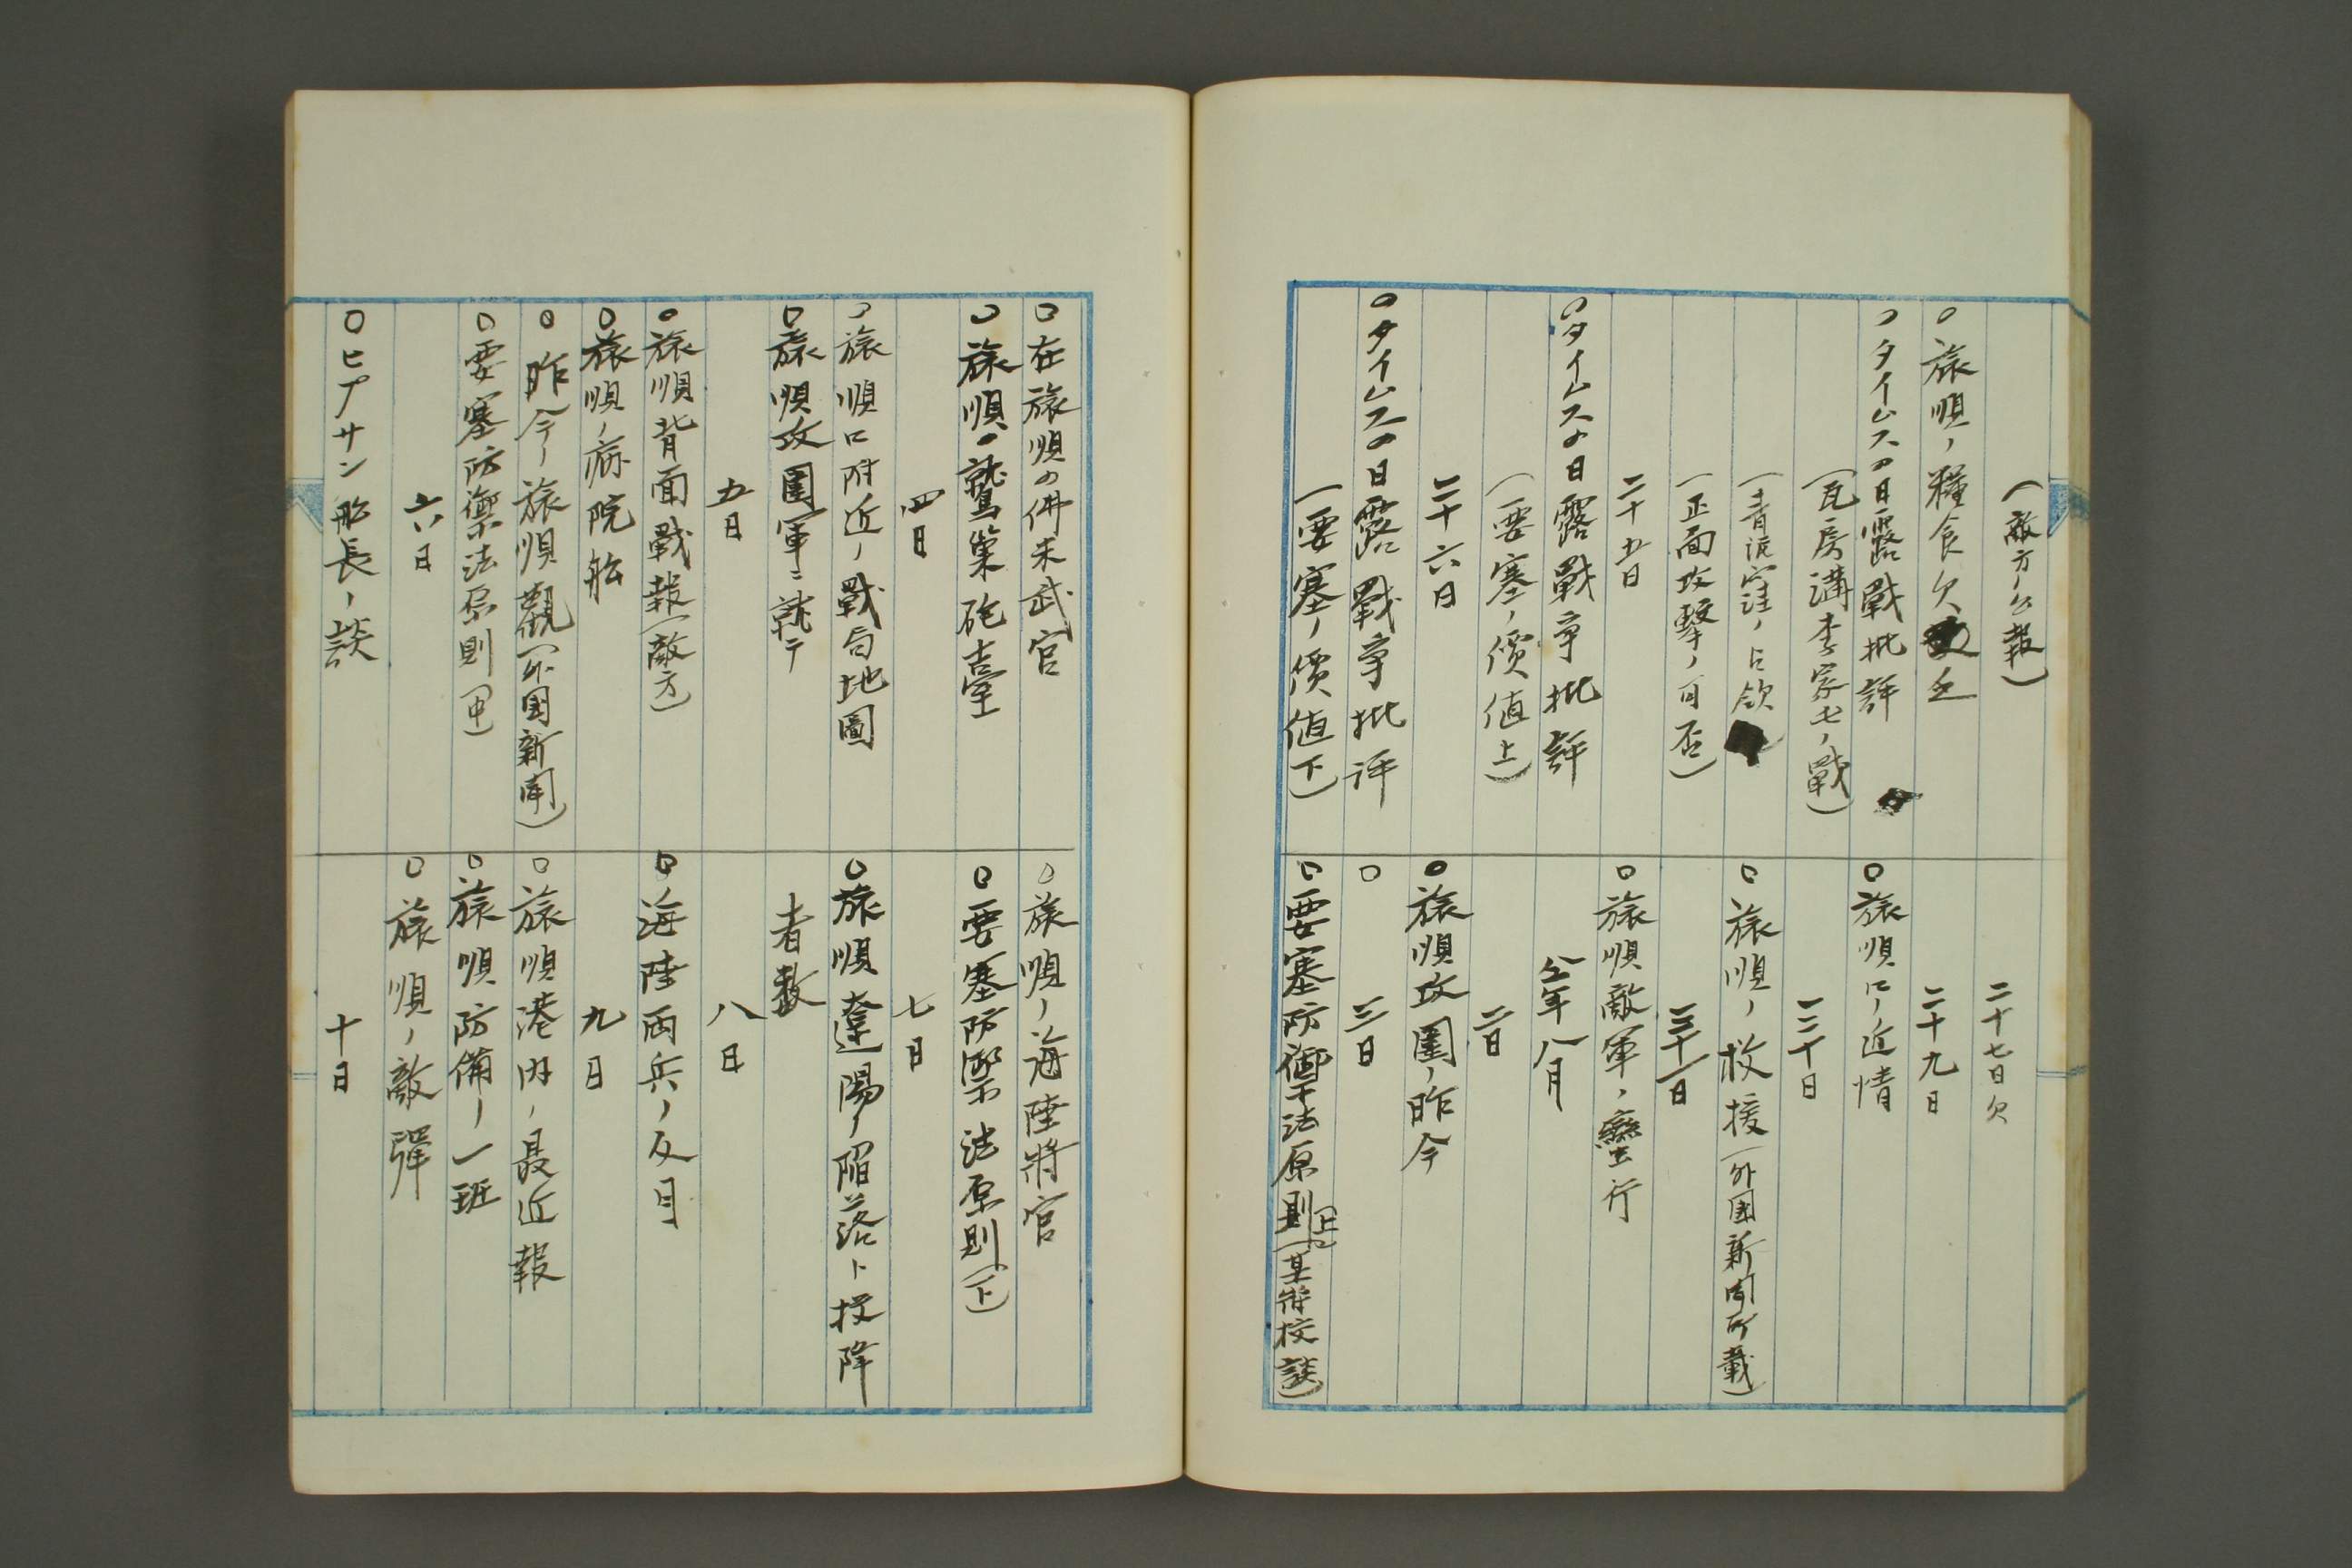 (敵方ノ公報)
○旅順ノ糧食欠乏
○タイムスの日露戰批評
(瓦房溝李家屯ノ戰)
(青泥窪ノ占領
(正面攻撃ノ可否)
二十五日
○タイムスの日露戰爭批評
(要塞ノ價値上)
二十六日
○タイムスの日露戰爭批評
(要塞ノ價値下)
二十七日欠
二十九日
○旅順口ノ近情
三十日
○旅順ノ救援(外国新聞所載)
三十一日
○旅順敵軍ノ蠻行
仝年八月
二日
○旅順攻圍ノ昨今
三日
○
○要塞防禦法原則(上)(某將校談)
○在旅順の佛米武官
○旅順の鷲巣砲臺
四日
○旅順口附近ノ戰局地圖
○旅順攻圍軍ニ就テ
五日
○旅順背面戰報(敵方)
○旅順ノ病院船
○昨今ノ旅順觀(外国新聞)
○要塞防禦法原則(中)
六日
○ヒプサン船長ノ談
○旅順ノ海陸將官
○要塞防禦法原則(下)
七日
○旅順遼陽ノ陥落ト投降
者数
八日
○海陸両兵ノ反目
九日
○旅順港内ノ最近報
○旅順防備ノ一班
○旅順ノ敵彈
十日